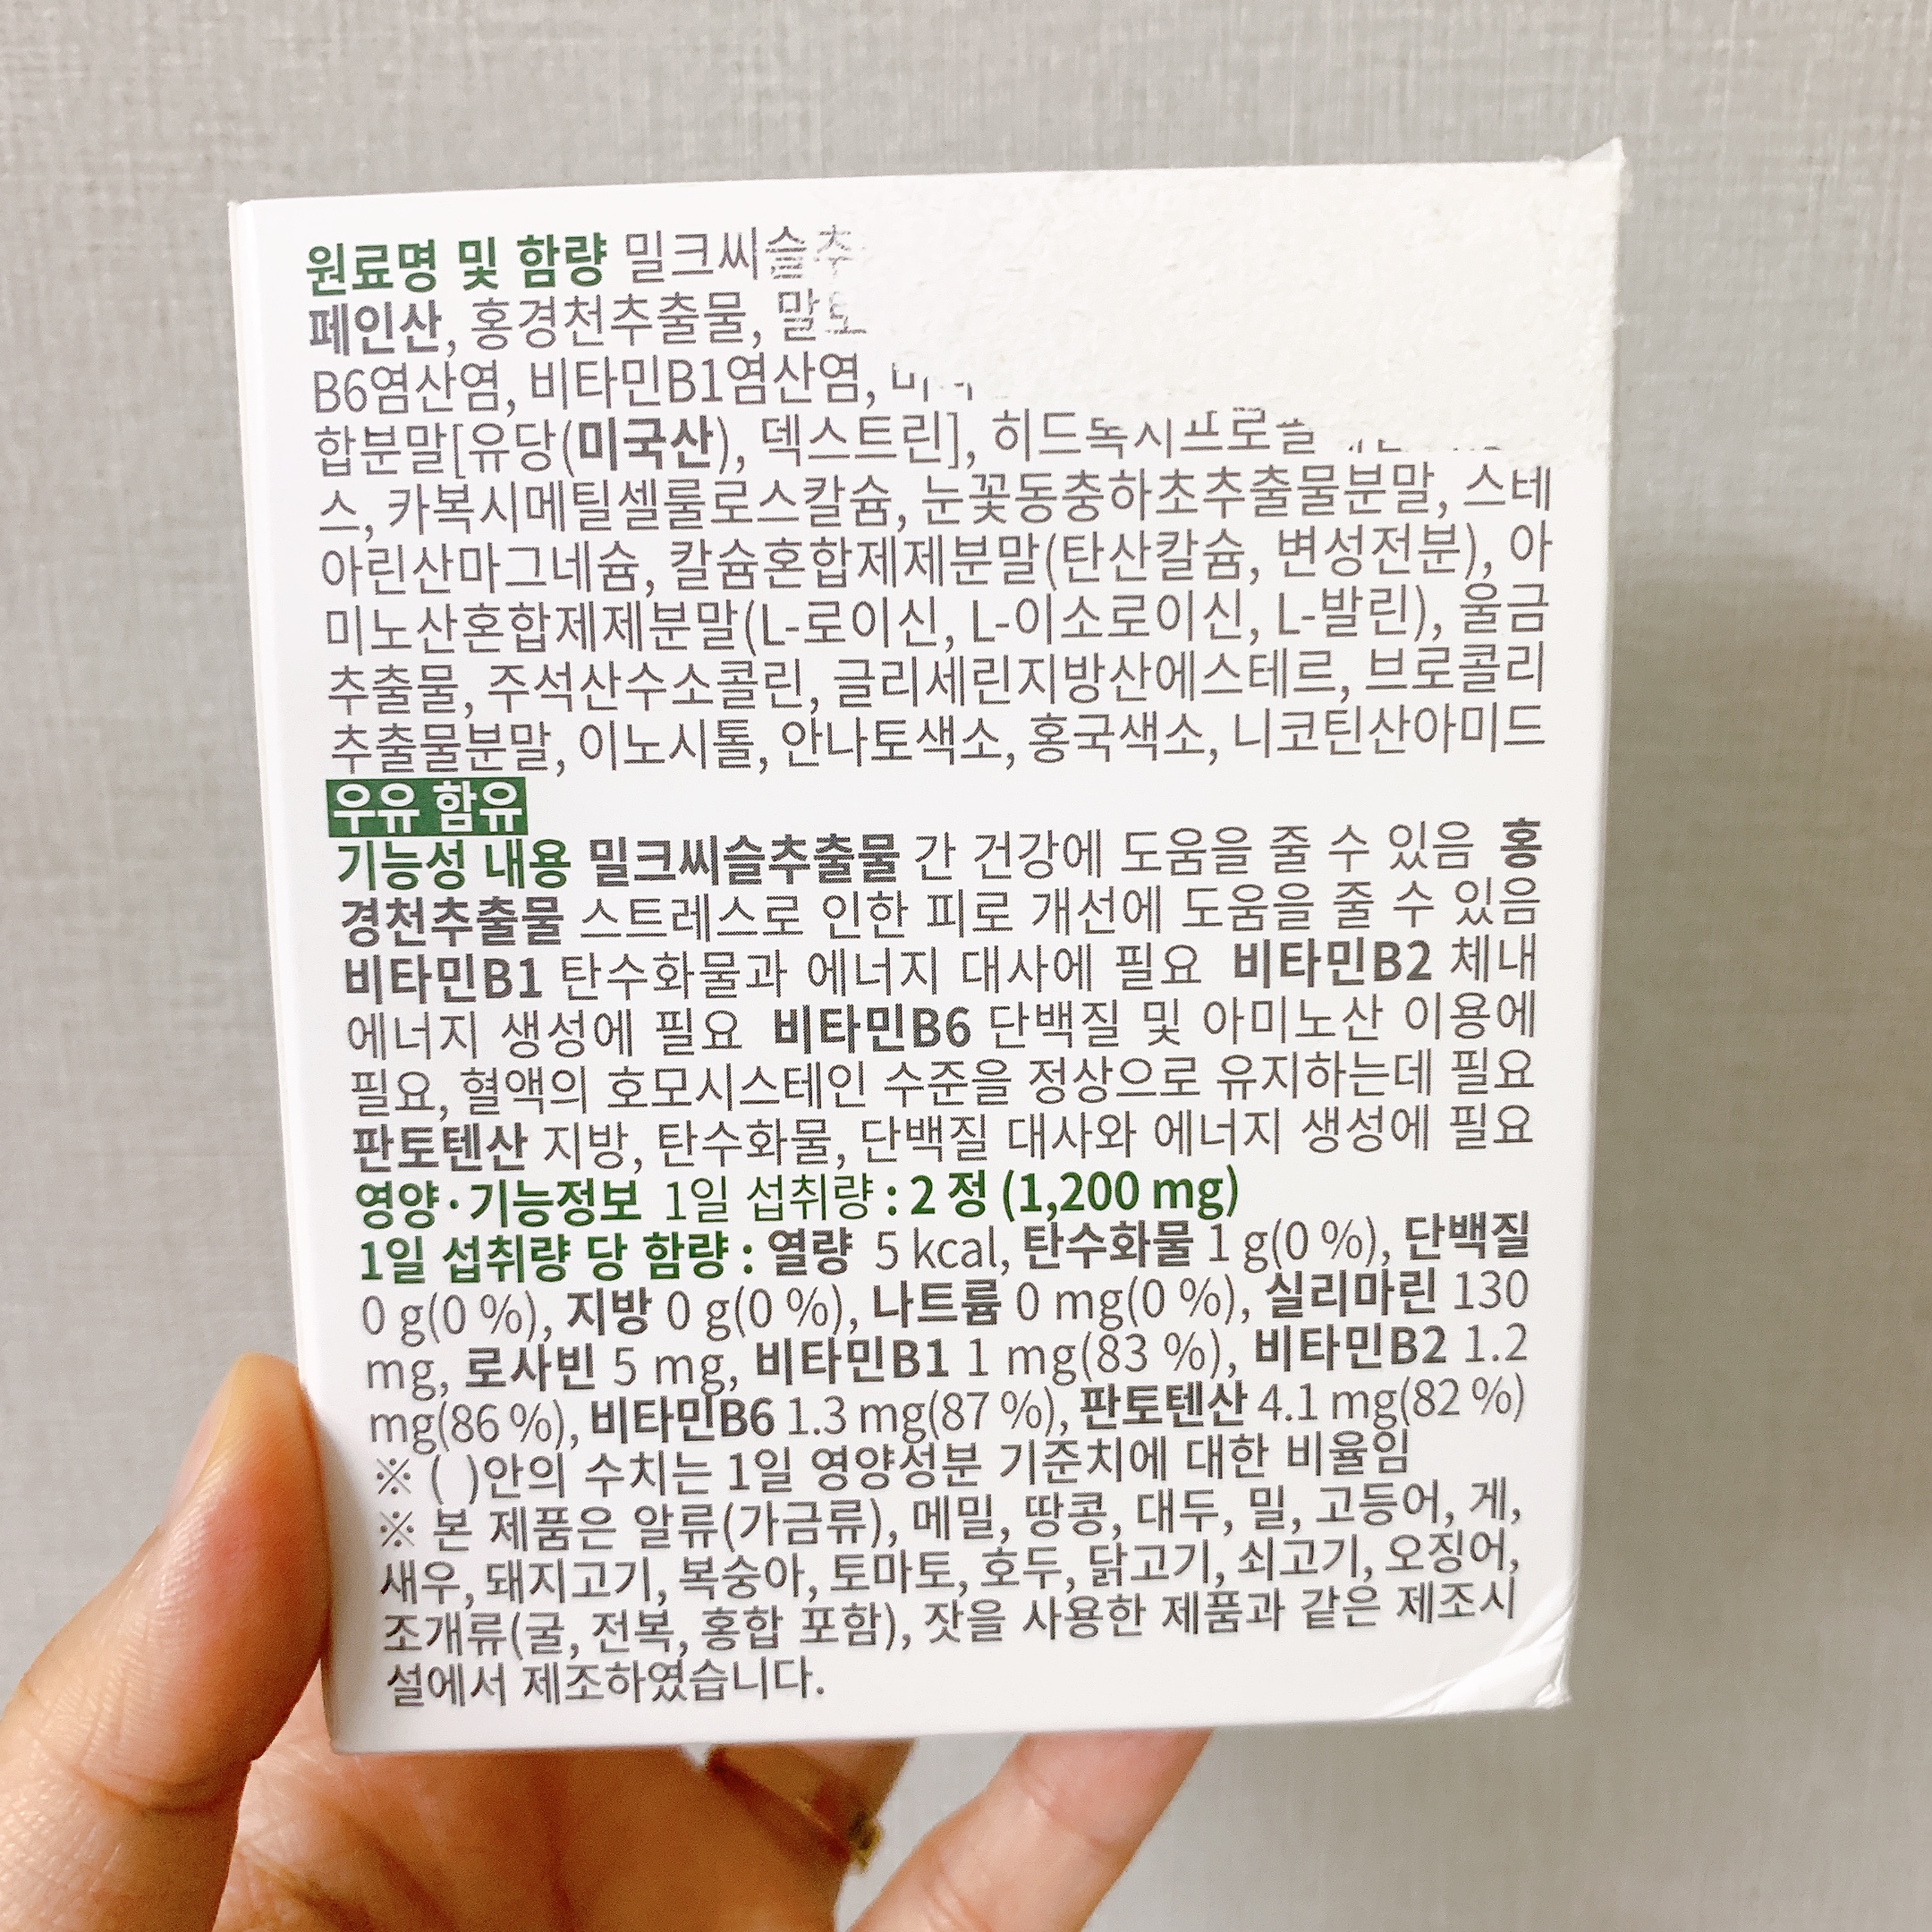 원료명 및 함량 밀크씨슬추
페인산, 홍경천추출물,
B6염산염, 비타민B1염산염,
합분말[유당(미국산), 덱스트린], 히드록시프로필
스, 카복시메틸셀룰로스칼슘, 눈꽃동충하초추출물분말, 스테
아린산마그네슘, 칼슘혼합제제분말(탄산칼슘, 변성전분), 아
미노산혼합제제분말(L-로이신, L-이소로이신, L-발린), 울금
추출물, 주석산수소콜린, 글리세린지방산에스테르, 브로콜리
추출물분말, 이노시톨, 안나토색소, 홍국색소, 니코틴산아미드
우유 함유
기능성 내용 밀크씨슬추출물 간 건강에 도움을 줄 수 있음 홍
경천추출물 스트레스로 인한 피로 개선에 도움을 줄 수 있음
비타민B1 탄수화물과 에너지 대사에 필요 비타민B2 체내
에너지 생성에 필요 비타민B6 단백질 및 아미노산 이용에
필요, 혈액의 호모시스테인 수준을 정상으로 유지하는데 필요
판토텐산 지방, 탄수화물, 단백질 대사와 에너지 생성에 필요
영양·기능정보 1일 섭취량 : 2 정 (1,200 mg)
1일 섭취량 당 함량 : 열량 5 kcal, 탄수화물 1 g(0 %), 단백질
0 g(0 %), 지방 0 g(0 %), 나트륨 0 mg(0 %), 실리마린 130
mg, 로사빈 5 mg, 비타민B1 1 mg(83 %), 비타민B2 1.2
mg(86 %), 비타민B6 1.3 mg(87 %), 판토텐산 4.1 mg(82 %)
※ ( )안의 수치는 1일 영양성분 기준치에 대한 비율임
※ 본 제품은 알류(가금류), 메밀, 땅콩, 대두, 밀, 고등어, 게,
새우, 돼지고기, 복숭아, 토마토, 호두, 닭고기, 쇠고기, 오징어,
조개류(굴, 전복, 홍합 포함), 잣을 사용한 제품과 같은 제조시
설에서 제조하였습니다.